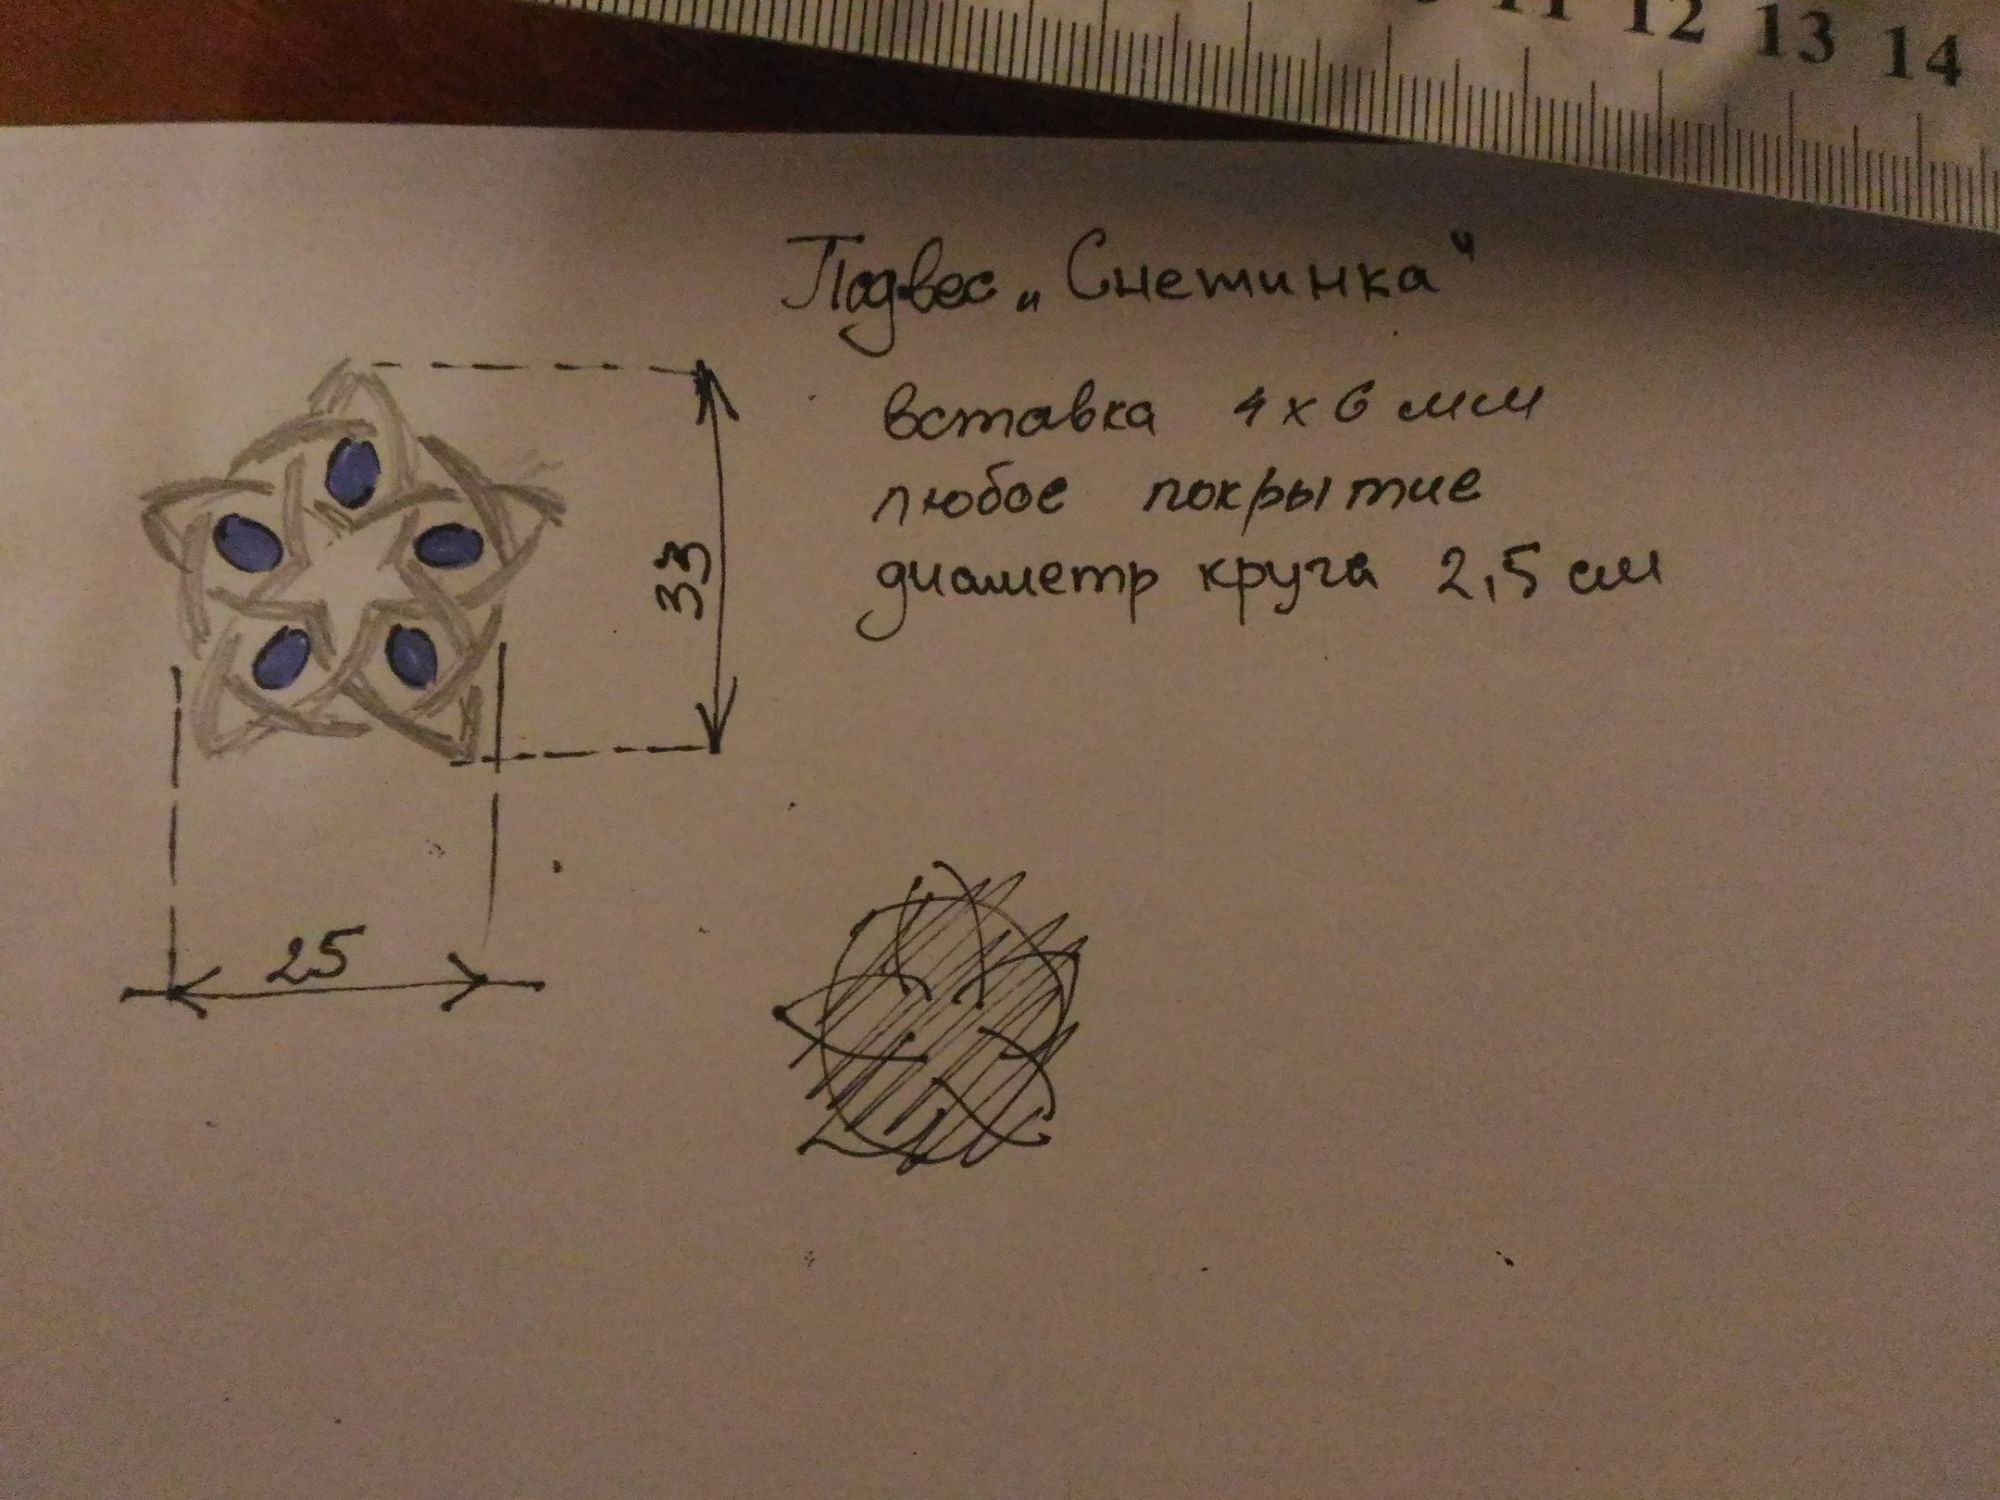 11 12 13 14
Подвес „Снетинка"
вставка 4 х 6 мм
любое покрытие
33
диаметр круга 2,5 см
25